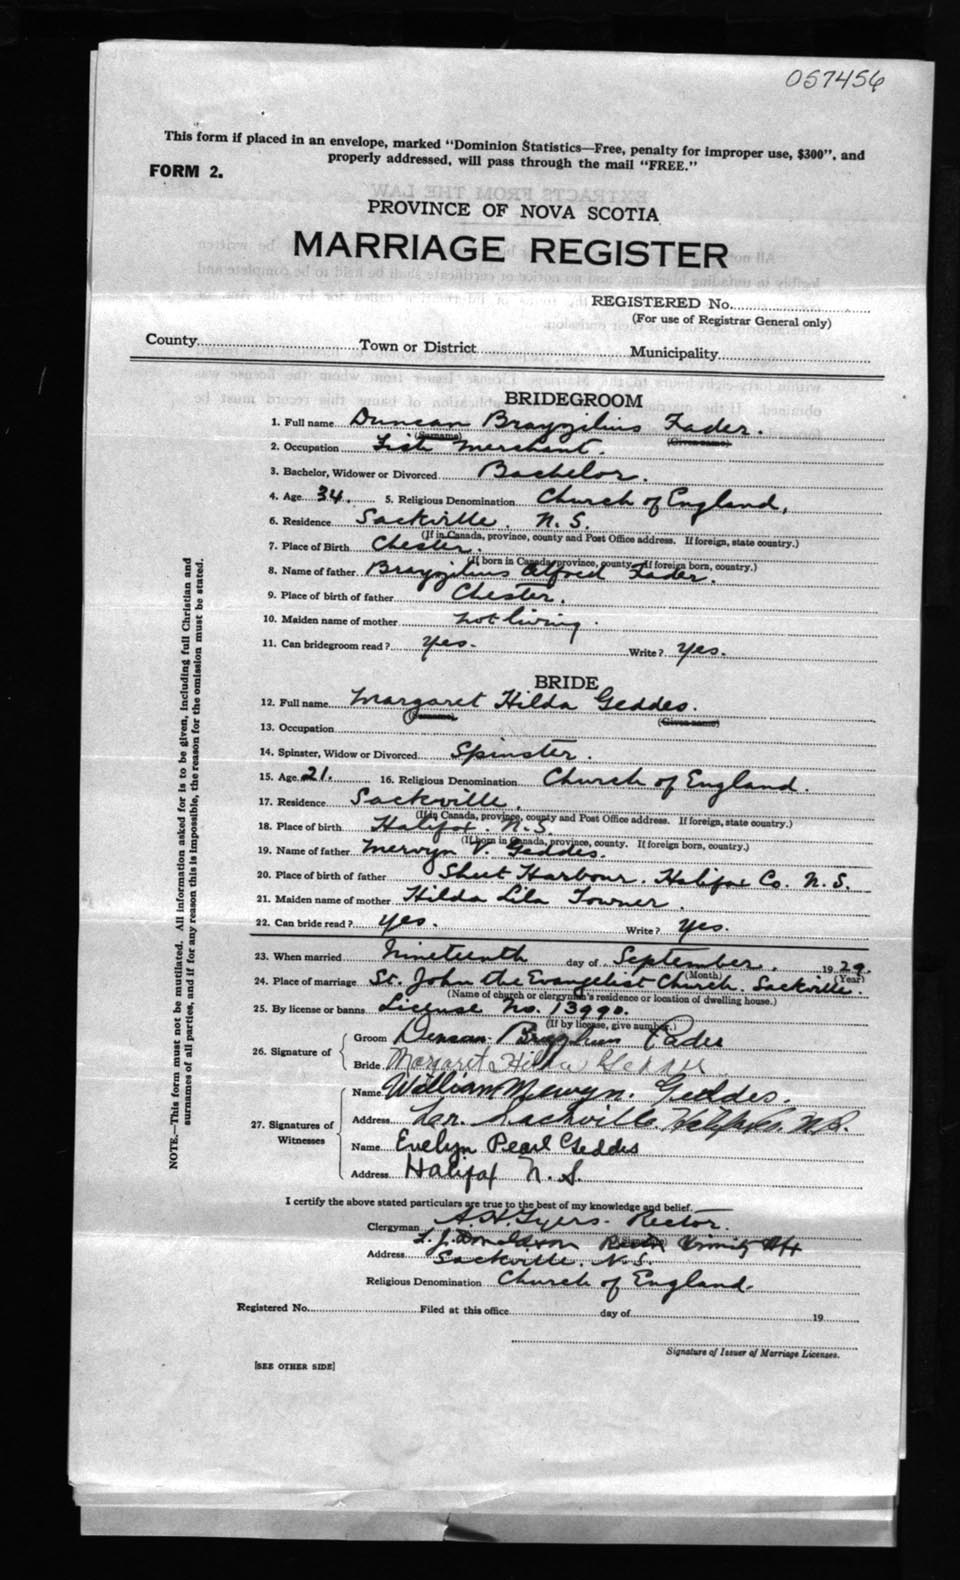 057456
This form if placed in an envelope, marked "Dominion Statistics—Free, penalty for improper use, $300", and
properly addressed, will pass through the mail "FREE."
FORM 2.
PROVINCE OF NOVA SCOTIA
MARRIAGE REGISTER
REGISTERED No.
(For use of Registrar General only)
County Town or District Municipality
BRIDEGROOM
1. Full name Duncan Brayzilius Fader.
(Surname) (Given name)
2. Occupation Fish Merchant.
3. Bachelor, Widower or Divorced Bachelor.
4. Age 34. 5. Religious Denomination Church of England,
6. Residence Sackville. N.S.
(If in Canada, province, county and Post Office address. If foreign, state country.)
7. Place of Birth Chester.
(If born in Canada, province, county. If foreign born, country.)
8. Name of father Brayzilius Alfred Fader.
9. Place of birth of father Chester.
10. Maiden name of mother not living.
11. Can bridegroom read? yes. Write? yes.
BRIDE
12. Full name Margaret Hilda Geddes.
(Surname) (Given name)
13. Occupation
14. Spinster, Widow or Divorced Spinster.
15. Age 21. 16. Religious Denomination Church of England.
17. Residence Sackville.
(If in Canada, province, county and Post Office address. If foreign, state country.)
18. Place of birth Halifax. N.S.
(If born in Canada, province, county. If foreign born, country.)
19. Name of father Mervyn V. Geddes.
20. Place of birth of father Sheet Harbour. Halifax Co. N.S.
21. Maiden name of mother Hilda Lila Towner.
22. Can bride read? yes. Write? yes.
23. When married Nineteenth day of September. 1929.
(Month) (Year)
24. Place of marriage St. John the Evangelist Church. Sackville.
(Name of church or clergyman's residence or location of dwelling house.)
25. By license or banns License No. 13990.
(If by license, give number.)
26. Signature of
Groom Duncan Fader
Bride Margaret Hilda Geddes
27. Signatures of Witnesses
Name William Mervyn. Geddes.
Address Sackville Halifax Co. N.S.
Name Evelyn Pearl Geddes
Address Halifax N.S.
I certify the above stated particulars are true to the best of my knowledge and belief.
Clergyman A.H. Tyers. Rector.
L. J. Donaldson Trinity Hfx
Address Sackville. N.S.
Religious Denomination Church of England.
Registered No. Filed at this office day of 19
Signature of Issuer of Marriage Licenses.
[SEE OTHER SIDE]
NOTE.—This form must not be mutilated. All information asked for is to be given, including full Christian and
surnames of all parties, and if for any reason this is impossible, the reason for the omission must be stated.